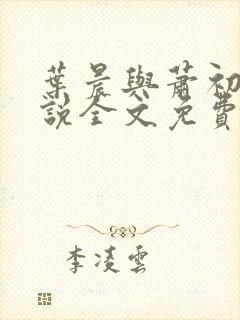 葉晨與蕭初
說全文免費
李凌雲